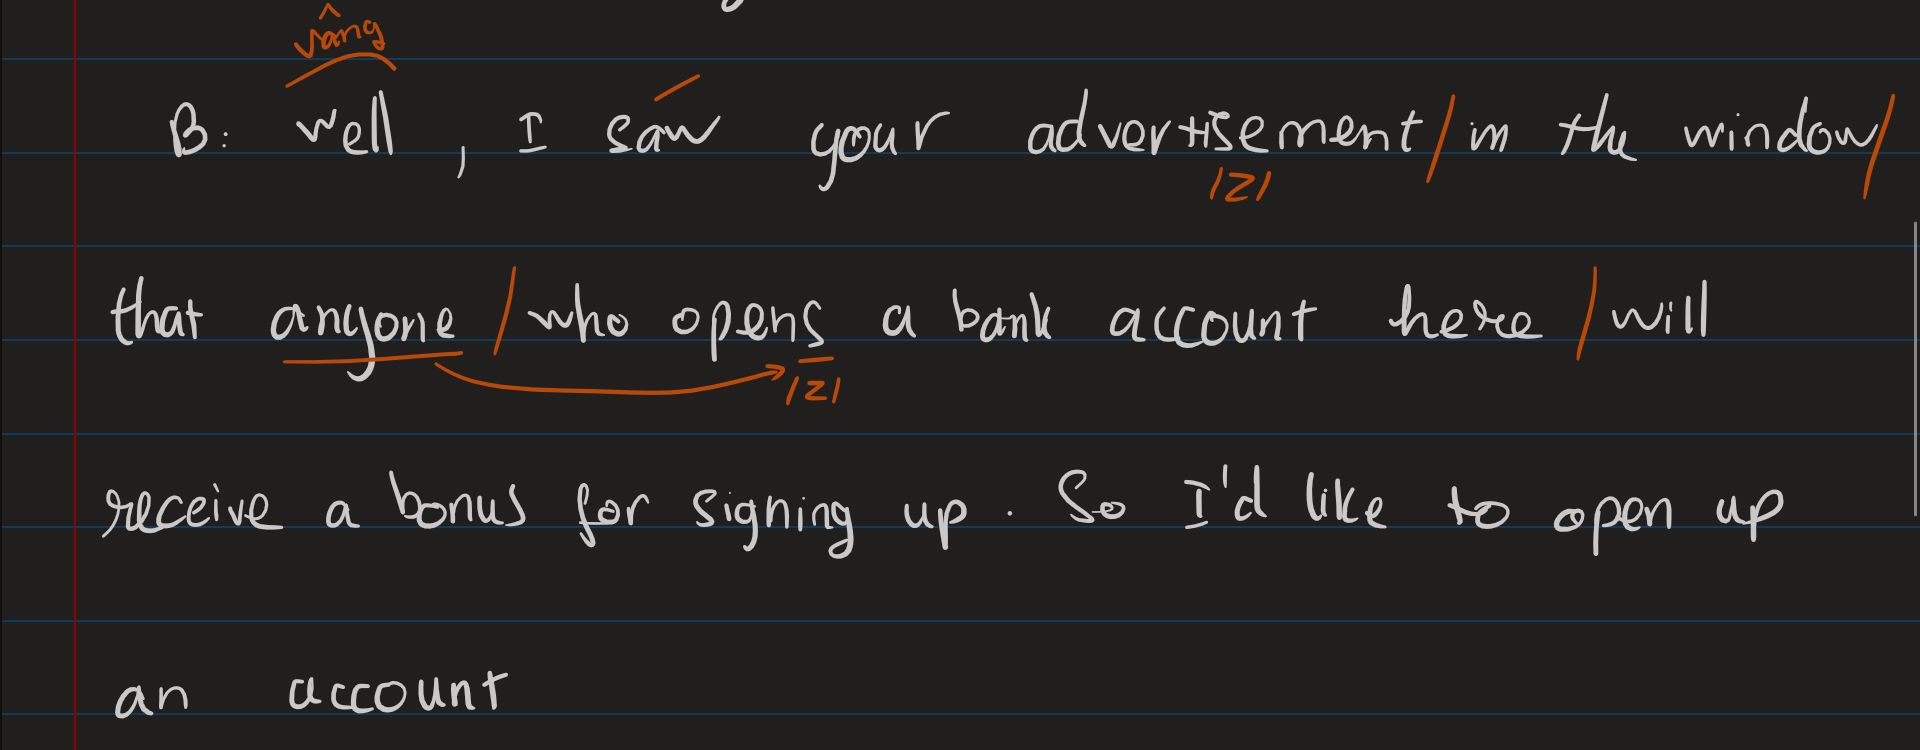 vâng
B: Well, I saw your advertisement / in the window /
/z/
that anyone / who opens a bank account here / will
/z/
receive a bonus for signing up. So I'd like to open up
an account